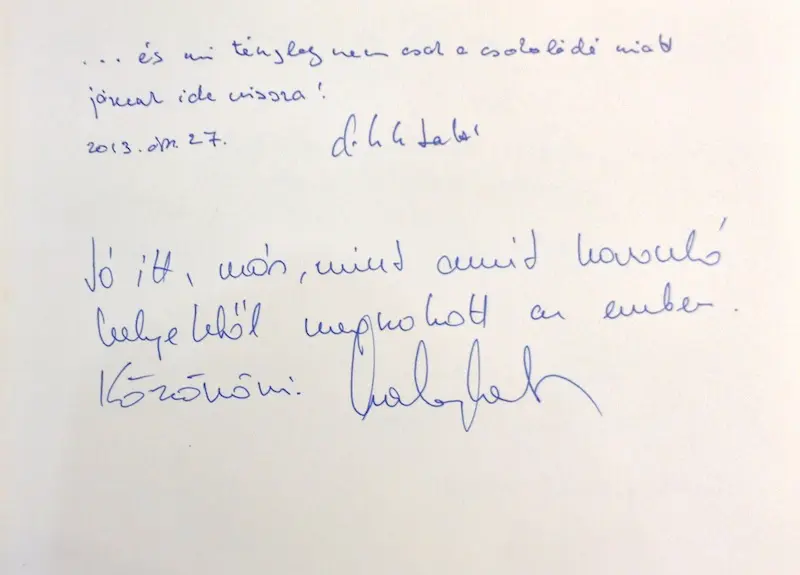 ... és mi tényleg nem csak a csokoládé miatt
járunk ide vissza!
2013. okt. 27.
Jó itt, más, mint amit hasonló
helyektől megszokott az ember.
Köszönöm.